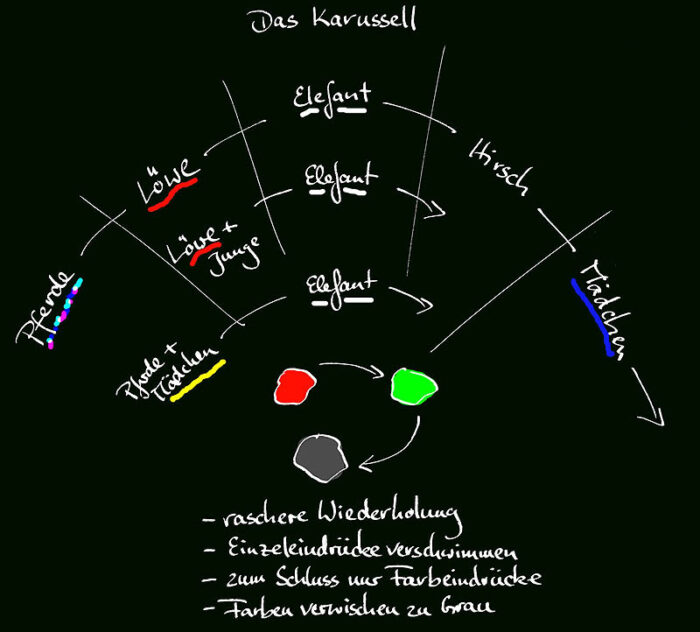 Das Karussell
Pferde
Löwe
Elefant
Hirsch
Mädchen
Löwe +
Junge
Elefant
Pferde +
Mädchen
Elefant
- raschere Wiederholung
- Einzeleindrücke verschwimmen
- zum Schluss nur Farbeindrücke
- Farben verwischen zu Grau